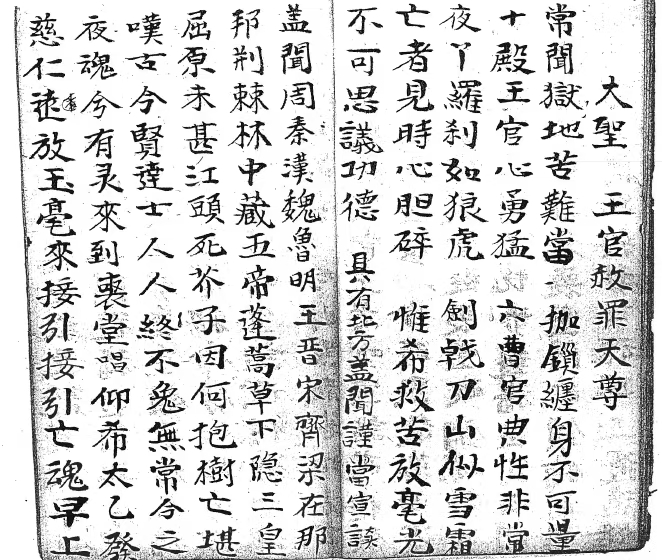 大聖　王官赦罪天尊
常聞獄地苦難當　枷鎖纏身不可量
十殿王官心勇猛　六曹官典性非常
夜丫羅刹如狼虎　劍戟刀山似雪霜
亡者見時心胆碎　惟希救苦放毫光
不可思議功德　具有些方盖聞謹當宣談
盖聞周秦漢魏魯明王晋宋齊梁在那
邦荆棘林中藏五帝蓬蒿草下隐三皇
屈原未甚江頭死芥子因何抱樹亡堪
嘆古今賢達士人人終不免無常今之
夜魂今有灵來到喪堂唱仰希太乙發
慈仁遠放玉毫來接引接引亡魂早上